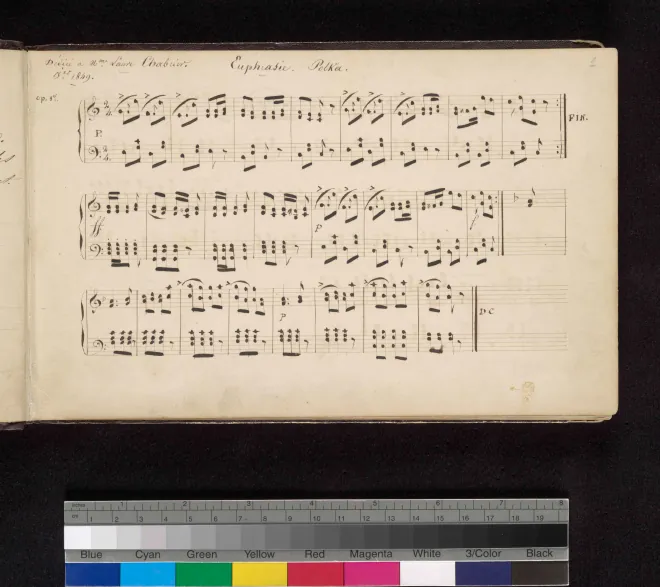 Dédié a Mme Laure Chabrier.
8bre 1849.
Euphrasie. Polka.
2
op. 1er
P.
FIN.
ff
P
P
DC
1 2 3 4 5 6 7 8
1 2 3 4 5 6 7 8 9 10 11 12 13 14 15 16 17 18 19
Blue Cyan Green Yellow Red Magenta White 3/Color Black